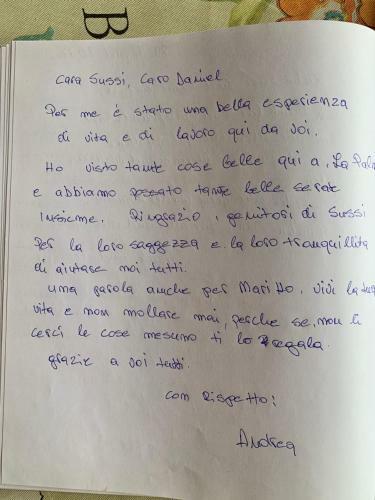 B
Cara Sussi, Caro Daniel
Per me è stato una bella esperienza
di vita e di lavoro qui da voi.
Ho visto tante cose belle qui a, La Palm
e abbiamo passato tante belle serate
insieme. Ringrazio i genitori di Sussi
Per la loro saggezza e la loro tranquillita
di aiutare noi tutti.
una parola anche per Maritto, vivi la tua
vita e non mollare mai, perche se non li
cerci le cose nesuno ti lo regala.
grazie a voi tutti.
Con Rispetto!
Andrea